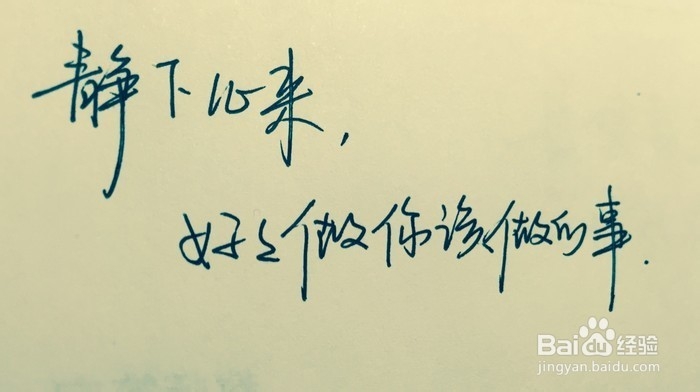 静下心来,
好々做你该做的事.
Baidu经验
jingyan.baidu.com